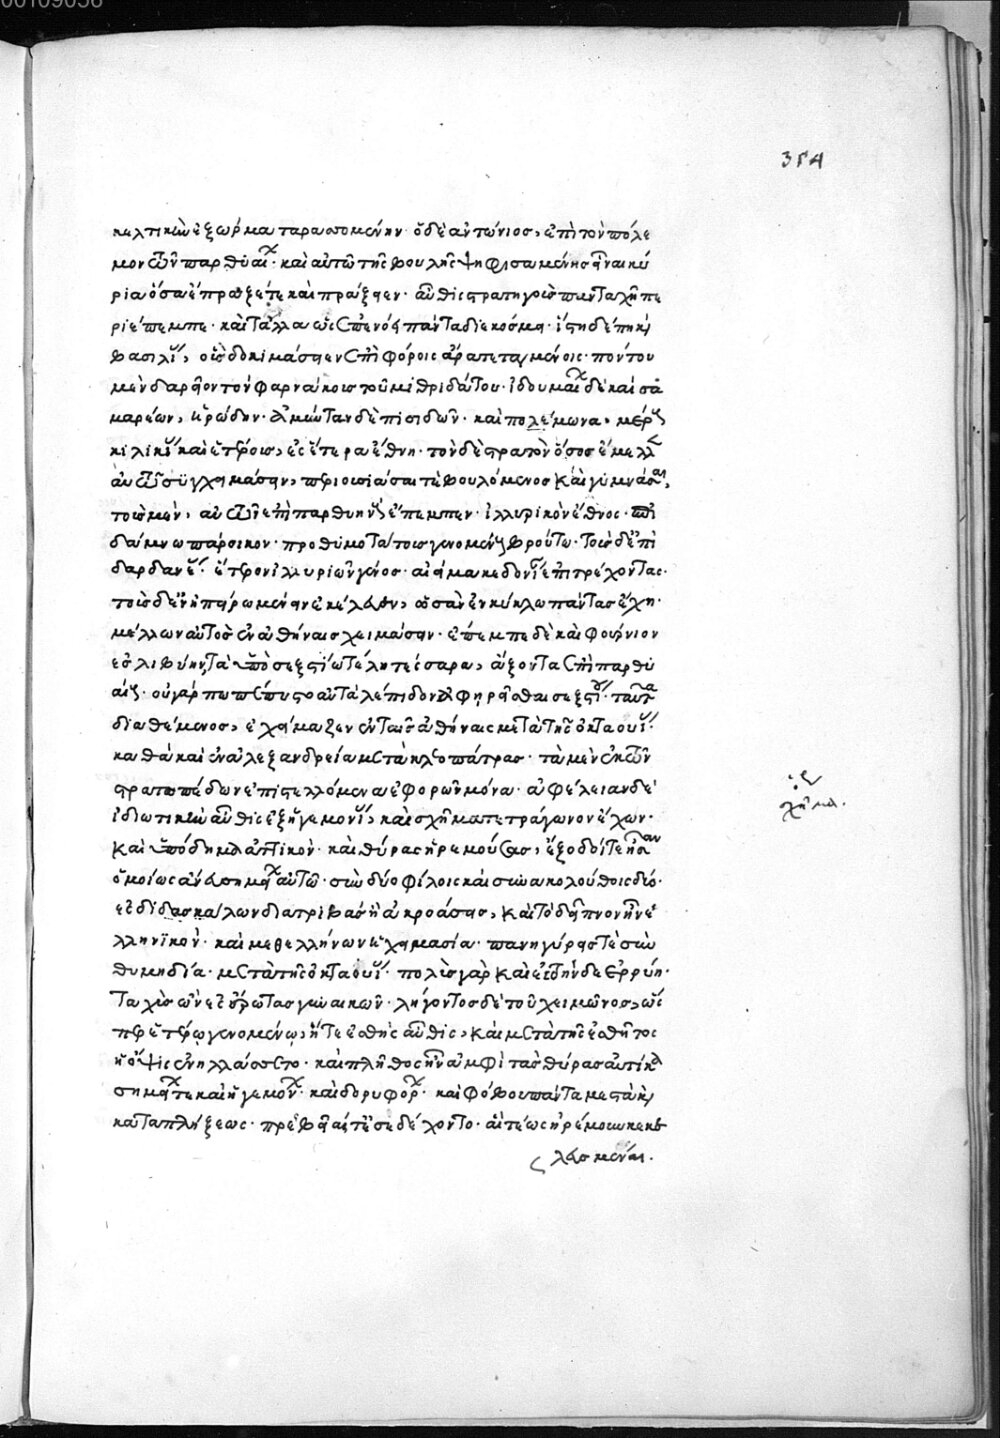 00109056
354
κελτικὴν ἐξώρμα ταρασσομένην. ὁ δὲ ἀντώνιος, ἐπὶ τὸν πόλε
μον ὢν παρθυαικ. καὶ αὐτῶ τῆς βουλῆς ψηφισαμένης εἶναι κύ
ρια ὅσα ἔπραξέ τε καὶ πράξειεν. αὖθις στρατηγοὺς πανταχῆ πε
ριέπεμπε. καὶ τἄλλα ὡς ἐπενόει πάντα διεκόσμει. ἵστη δέ πη καὶ
βασιλεῖς, οὓς δοκιμάσειεν ἐπὶ φόροις ἄρα τεταγμένοις. πόντου
μὲν δαρεῖον τὸν φαρνάκους τοῦ μιθριδάτου. ἰδουμαίων δὲ καὶ σα
μαρέων, ἡρώδην. ἀμύνταν δὲ πισιδῶν. καὶ πολέμωνα, μέρους
κιλικίας καὶ ἑτέρους, ἐς ἕτερα ἔθνη. τὸν δὲ στρατὸν ὅσος ἔμελλεν
αὐτῶ συγχειμάσειν, περιουσιάσαι τε βουλόμενος καὶ γυμνάσαι,
τοὺς μὲν, αὐτῶν ἐπὶ παρθηνοὺς ἔπεμπεν. ἰλλυρικὸν ἔθνος. ἐπι
δάμνω πάροικον. προθυμοτάτους γενομένους βρούτω. τοὺς δὲ ἐπὶ
δαρδανέας. ἕτερον ἰλλυριῶν γένος. αἰεὶ μακεδονίαν ἐπιτρέχοντας.
τοὺς δὲ ἐν ἠπείρω μένειν ἐκέλευεν, ὡς ἂν ἐν κύκλω πάντας ἔχοι.
μέλλων αὐτὸς ἐν ἀθήναις χειμάσειν. ἔπεμπε δὲ καὶ φούρνιον
ἐς λιβύην, τὰ ὑπὸ σεξστίω τέλη τέσσαρα, ἄξοντα ἐπὶ παρθυ
αίους. οὐ γάρ πω πέπυστο αὐτὰ λέπιδον ἀφηρῆσθαι σεξστίου. ταῦτα
διαθέμενος, ἐχείμαζεν ἐν ταῖς ἀθήναις μετὰ τῆς ὀκταουίας.
καθὰ καὶ ἐν ἀλεξανδρεία μετὰ κλεοπάτρας. τὰ μὲν ἐκ τῶν
στρατοπέδων ἐπιστελλόμενα ἐφορῶν μόνα. ἀφέλειαν δὲ
ἰδιωτικὴν αὖθις ἐξ ἡγεμονίας, καὶ σχῆμα τετράγωνον ἔχων.
καὶ ὑπόδημα ἀττικὸν. καὶ θύρας ἠρεμούσας, ἔξοδοί τε ἦσαν
ὁμοίως ἄνευ σημείων αὐτῶ. σὺν δύο φίλοις καὶ σὺν ἀκολούθοις δύο.
ἐς διδασκάλων διατριβὰς ἢ ἀκροάσεις, καὶ τὸ δεῖπνον ἦν ἑ
λληνικὸν. καὶ μεθ ἑλλήνων ἡ χειμασία. πανηγύρεις τὲ σὺν
θυμηδία. μετὰ τῆς ὀκταουίας. πολὺς γὰρ καὶ ἐς τήνδε ἐρρύη.
ταχὺς ὢν ἐς ἔρωτας γυναικῶν. λήγοντος δὲ τοῦ χειμῶνος, ὥσ
περ ἑτέρω γενομένω, ἥ τε ἐσθὴς αὖθις, καὶ μετὰ τῆς ἐσθῆτος
ἡ ὄψις ἐνηλλάσσετο. καὶ πλῆθος ἦν ἀμφὶ τὰς θύρας αὐτίκα
σημείων τε καὶ ἡγεμόνων. καὶ δορυφόρων. καὶ φόβου πάντα μεστὰ καὶ
καταπλήξεως. πρεσβεῖαί τε ἐσεδέχοντο. αἳ τέως ἠρέμουν κεκε
λευσμέναι.
σχῆμα.